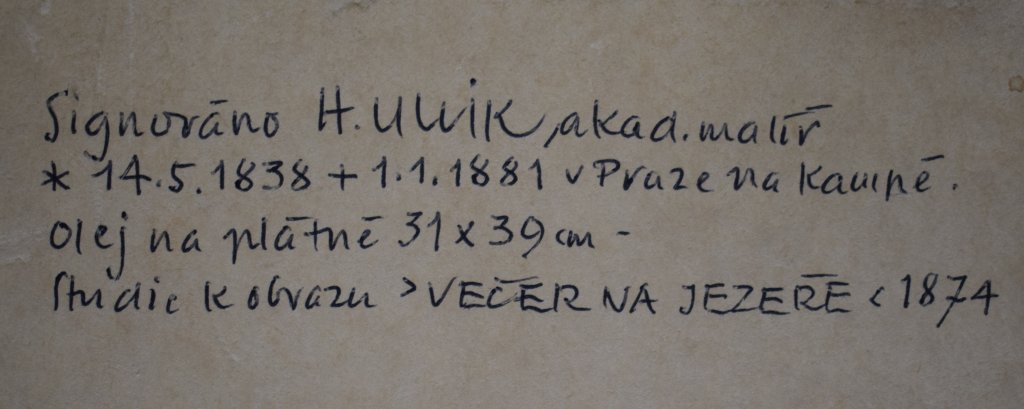 Signováno H. Ullik, akad. malíř
* 14.5.1838 + 1.1.1881 v Praze na Kampě.
Olej na plátně 31 x 39 cm -
Studie k obrazu > VEČER NA JEZEŘE < 1874